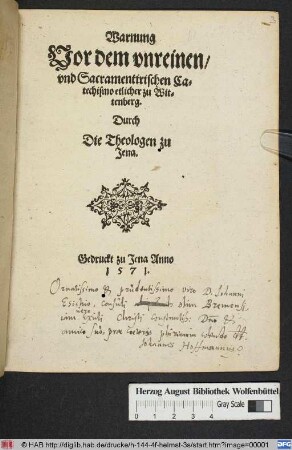 Warnung
Vor dem vnreinen/
vnd Sacramentirischen Ca-
techismo etlicher zu Wit-
tenberg.
Durch
Die Theologen zu
Jena.
Gedruckt zu Jena Anno
1571.
Ornatissimo & prudentissimo viro D. Johanni
consuli olim Bremensi
Christi
Johannes Hoffmannus
Herzog August Bibliothek Wolfenbüttel
Gray Scale
© HAB http://diglib.hab.de/drucke/h-144-4f-helmst-3s/start.htm?image=00001